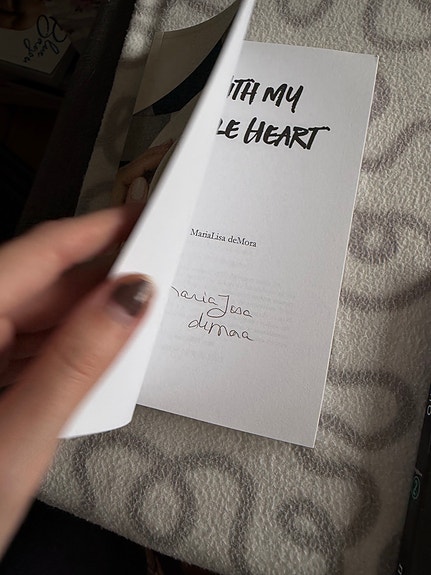 ITH MY
LE HEART
MariaLisa deMora
maria Lisa
deMora